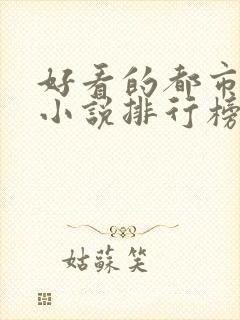 好看的都市
小說排行榜
姑蘇笑